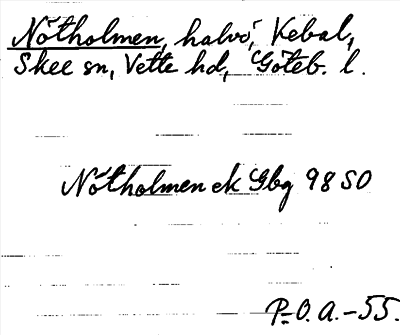 Nötholmen, halvö, Kebal,
Skee sn, Vette hd, Göteb. l.
Nötholmen ek Gbg 98 SO
P.O.A.-55.